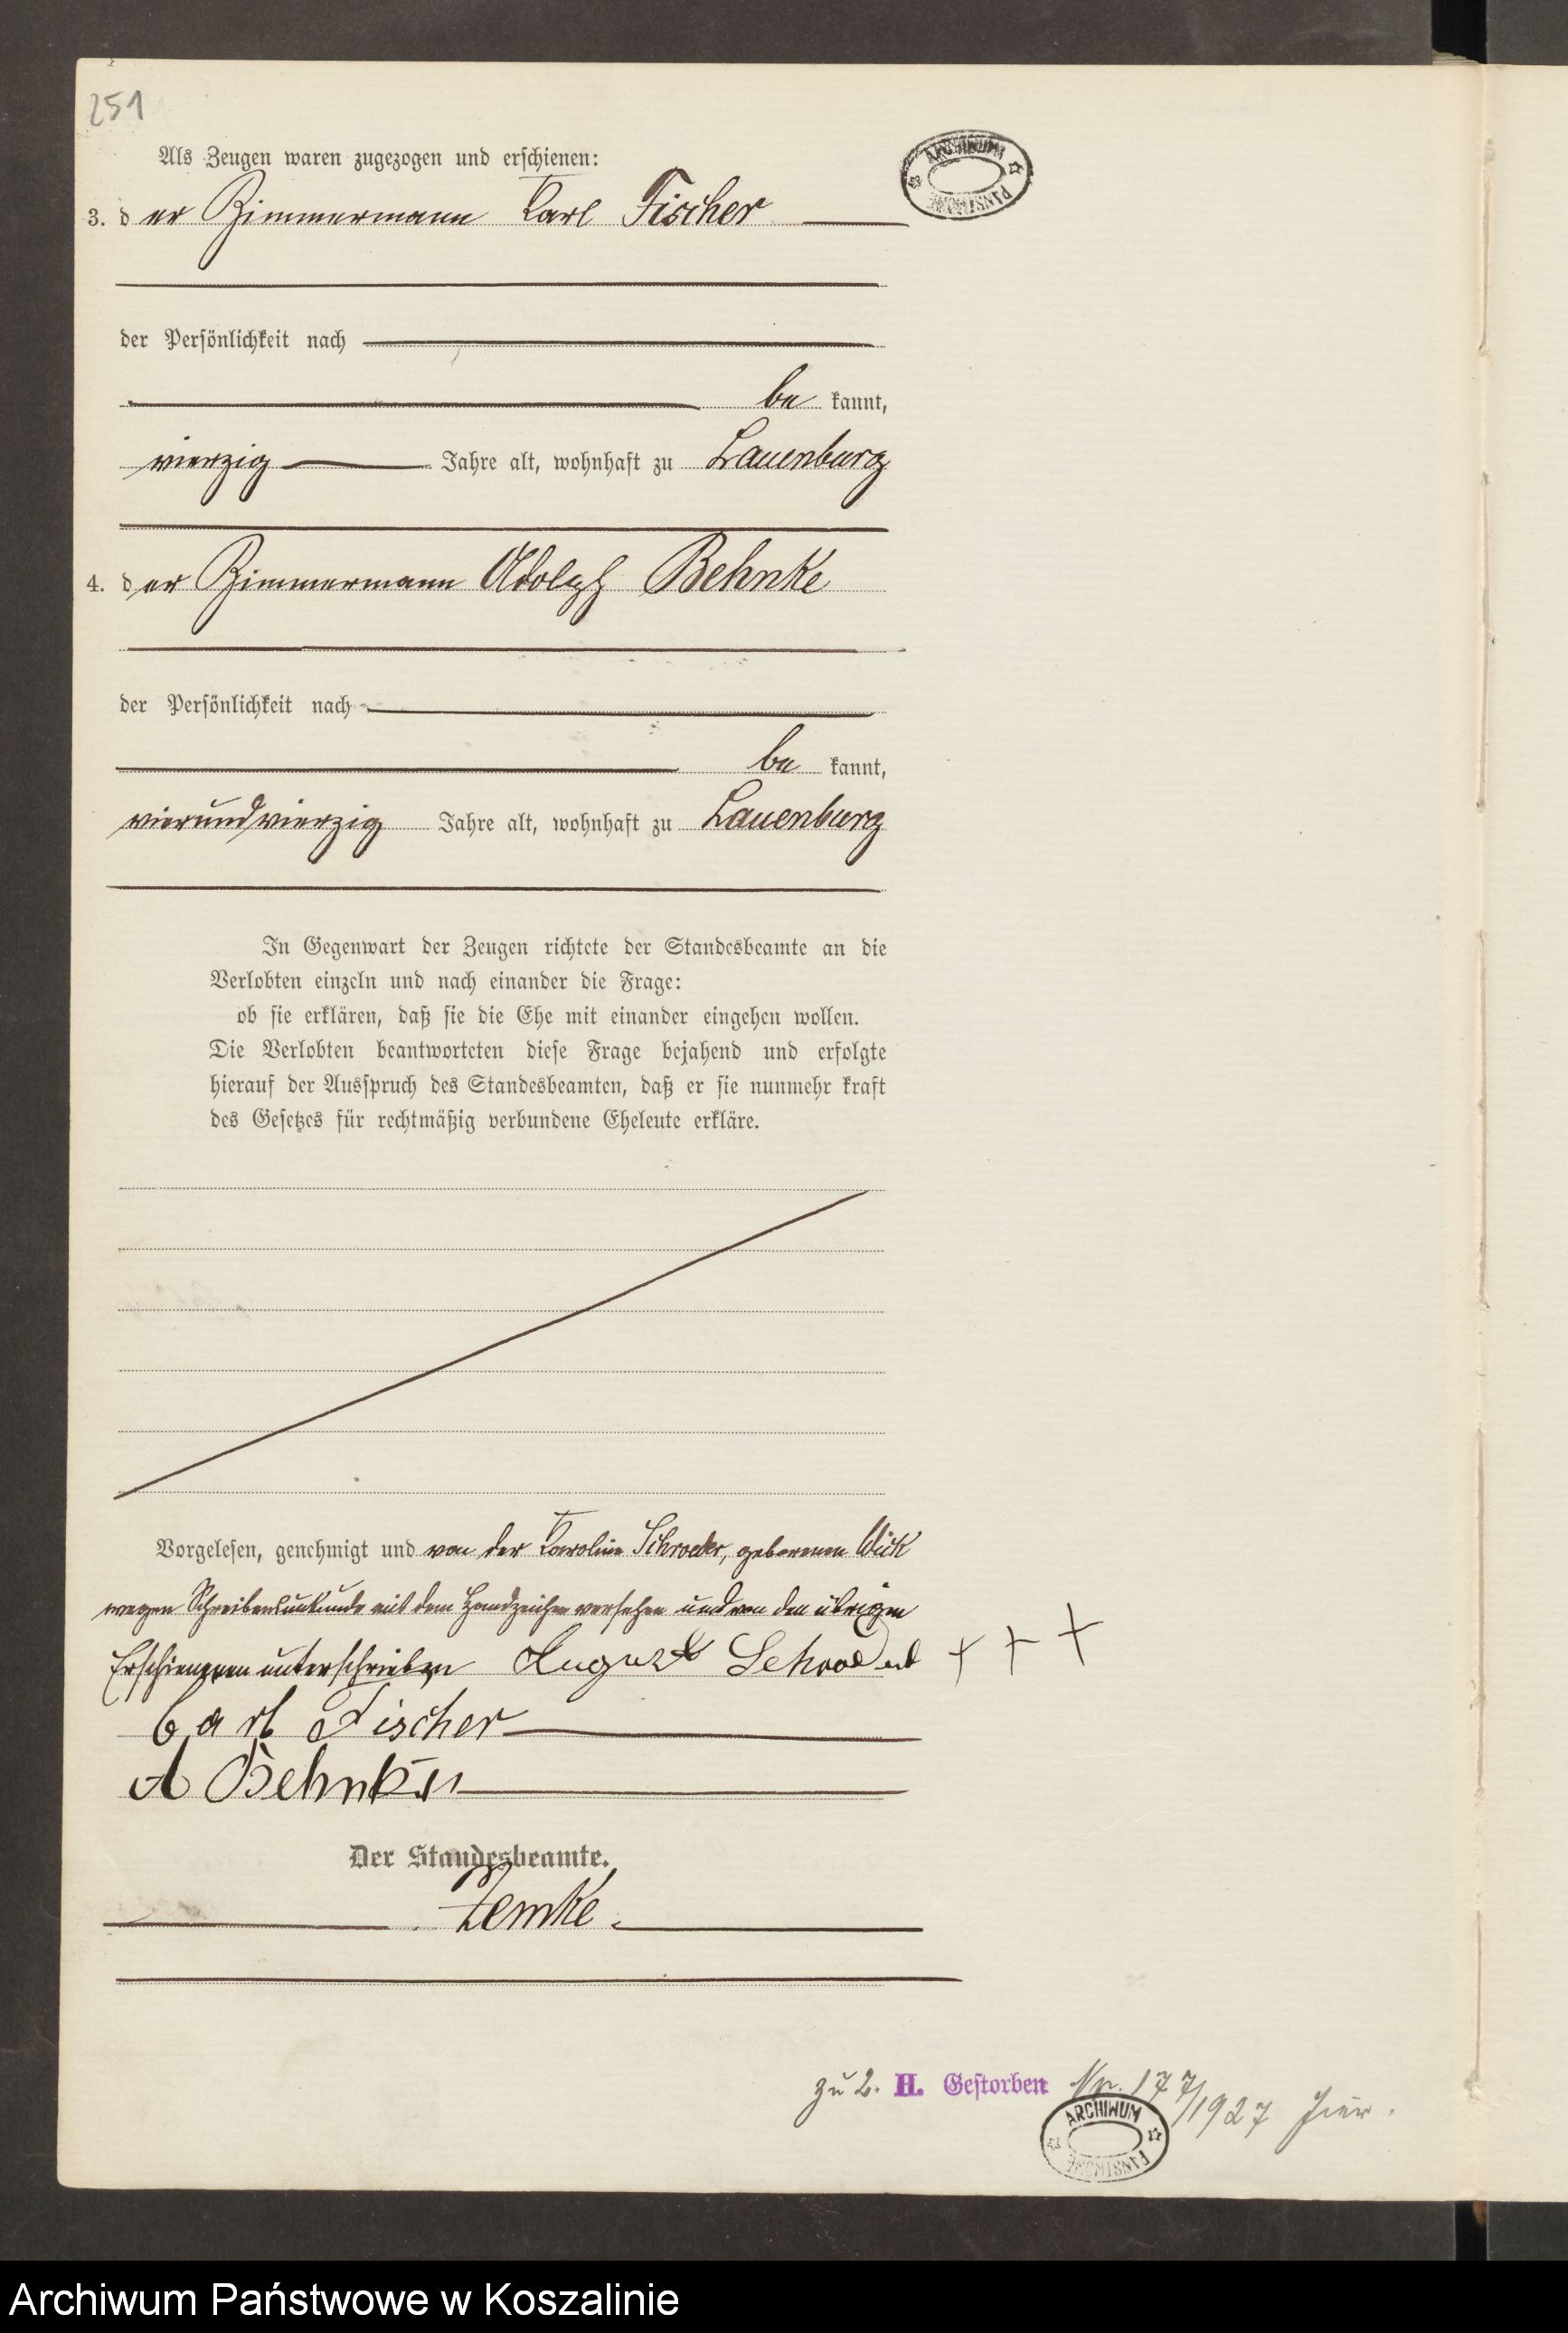 251
Als Zeugen waren zugezogen und erschienen:
3. der Zimmermann Karl Fischer
der Persönlichkeit nach
bekannt,
vierzig Jahre alt, wohnhaft zu Lauenburg
4. der Zimmermann Adolph Behnke
der Persönlichkeit nach
bekannt,
vierundvierzig Jahre alt, wohnhaft zu Lauenburg
In Gegenwart der Zeugen richtete der Standesbeamte an die
Verlobten einzeln und nach einander die Frage:
ob sie erklären, daß sie die Ehe mit einander eingehen wollen.
Die Verlobten beantworteten diese Frage bejahend und erfolgte
hierauf der Ausspruch des Standesbeamten, daß er sie nunmehr kraft
des Gesetzes für rechtmäßig verbundene Eheleute erkläre.
Vorgelesen, genehmigt und von der Karoline Schroeder, geborenen Wick
wegen Schreibensunkunde mit dem Handzeichen versehen und von den übrigen
Erschienenen unterschrieben August Schroeder + + +
Carl Fischer
A Behnke
Der Standesbeamte.
Zemke.
zu 2. H. Gestorben Nr. 177/1927 hier.
ARCHIWUM PAŃSTWOWE
ARCHIWUM PAŃSTWOWE
Archiwum Państwowe w Koszalinie